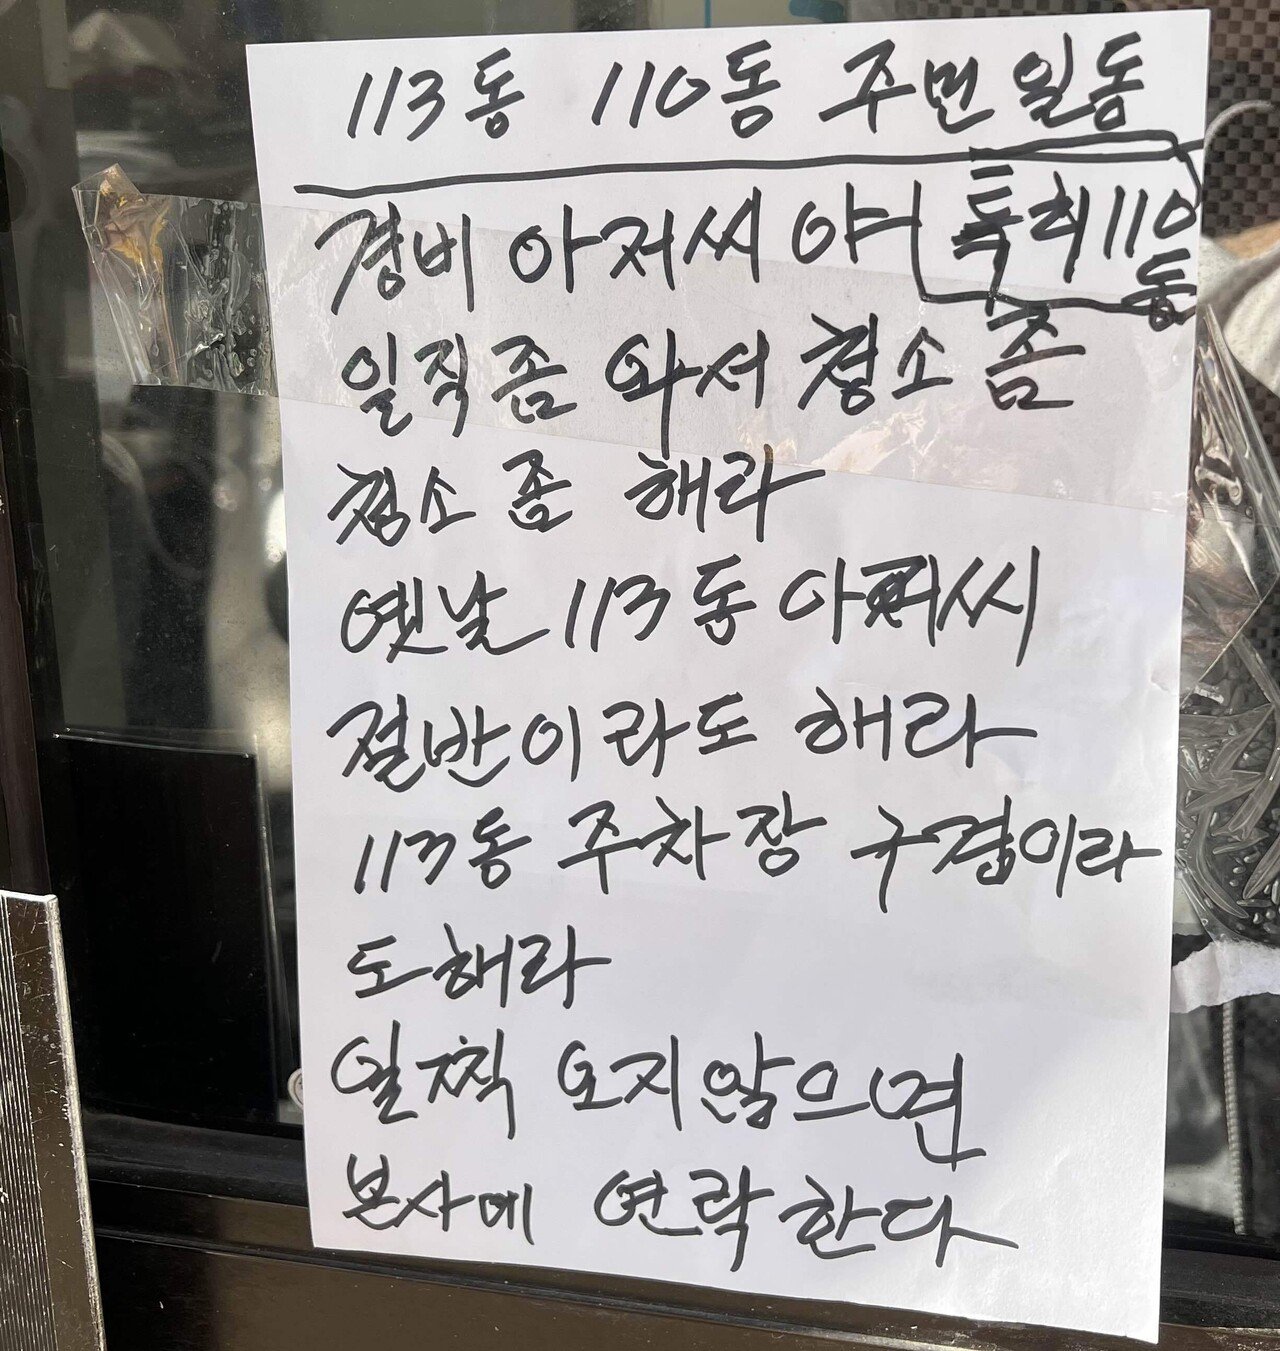 113동 110동 주먼일동
경비 아저씨 야 특히 110동
일직좀 와서 청소 좀
청소 좀 해라
옛날 113동 아저씨
절반이라도 해라
113동 주차장 구경이라
도해라
일찍 오지 않으면
본사에 연락한다